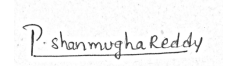 P. shanmugha Reddy